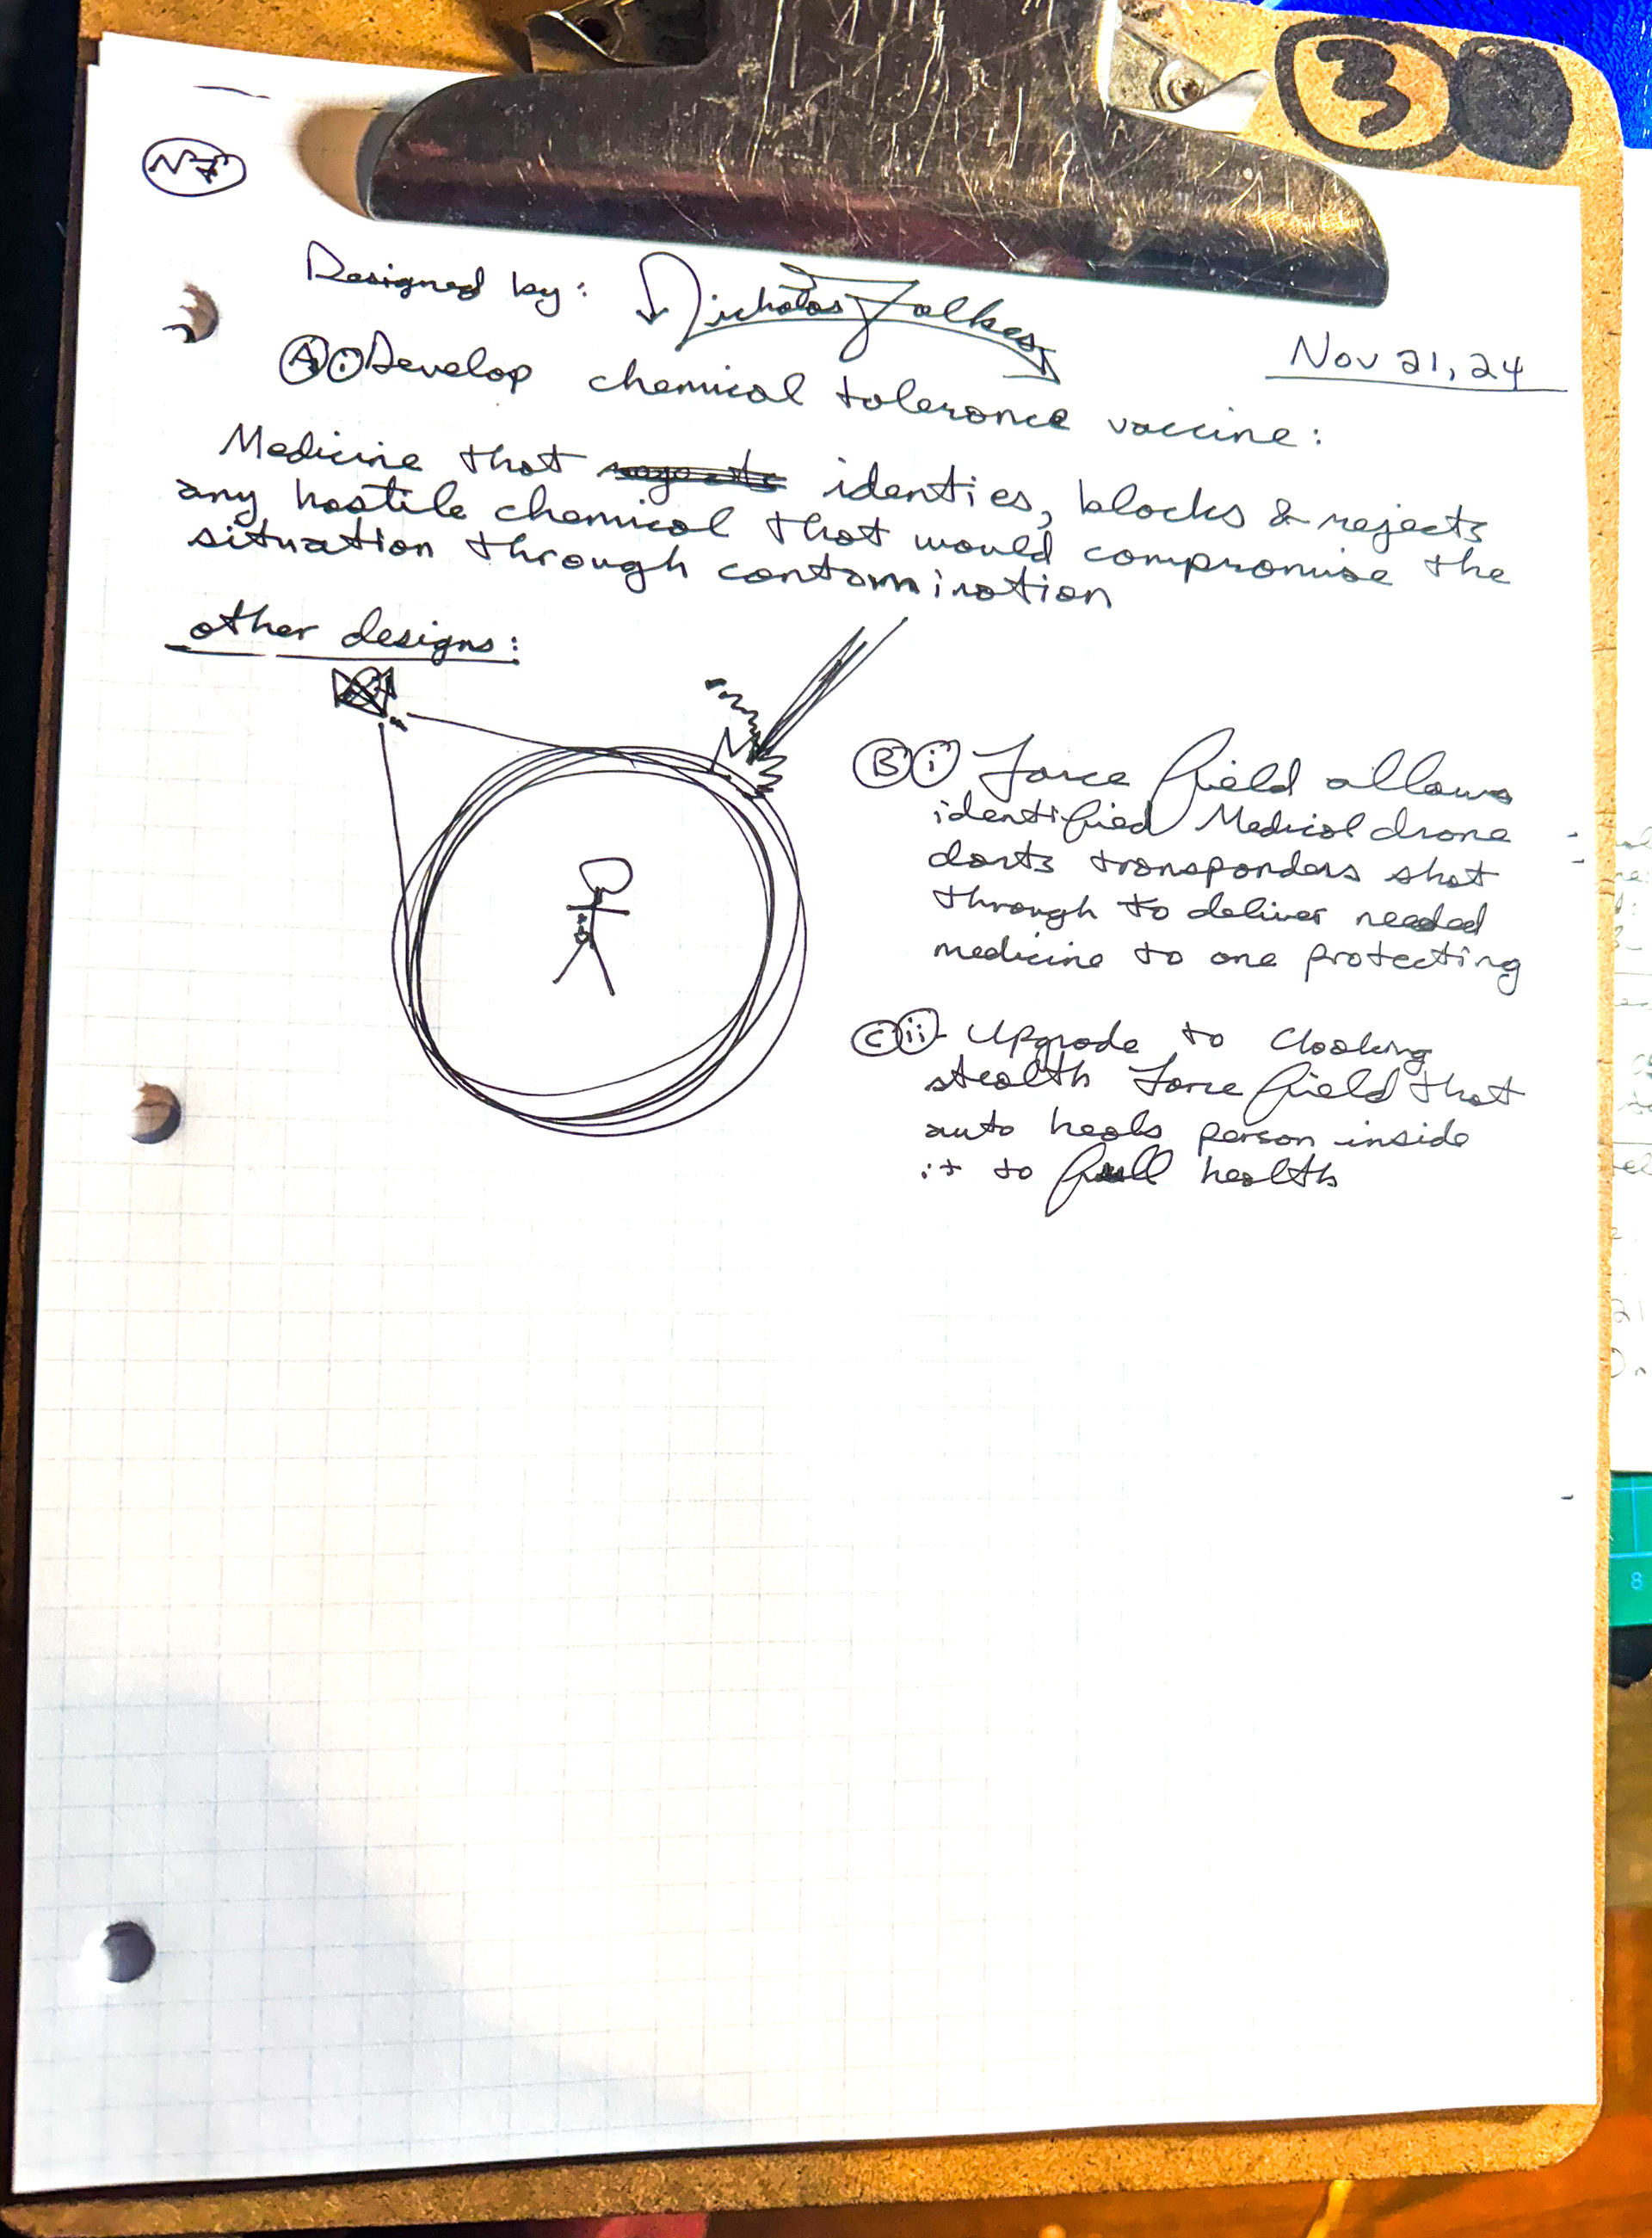 3
NF
Designed by: Nicholas Falkes
Nov 21, 24
A i Develop chemical tolerance vaccine:
Medicine that identies, blocks & rejects
any hostile chemical that would compromise the
situation through contamination
other designs:
B i Force field allows
identified Medical drone
darts transponders shot
through to deliver needed
medicine to one protecting
C ii - Upgrade to Cloaking
stealth Force field that
auto heals person inside
it to full health
8